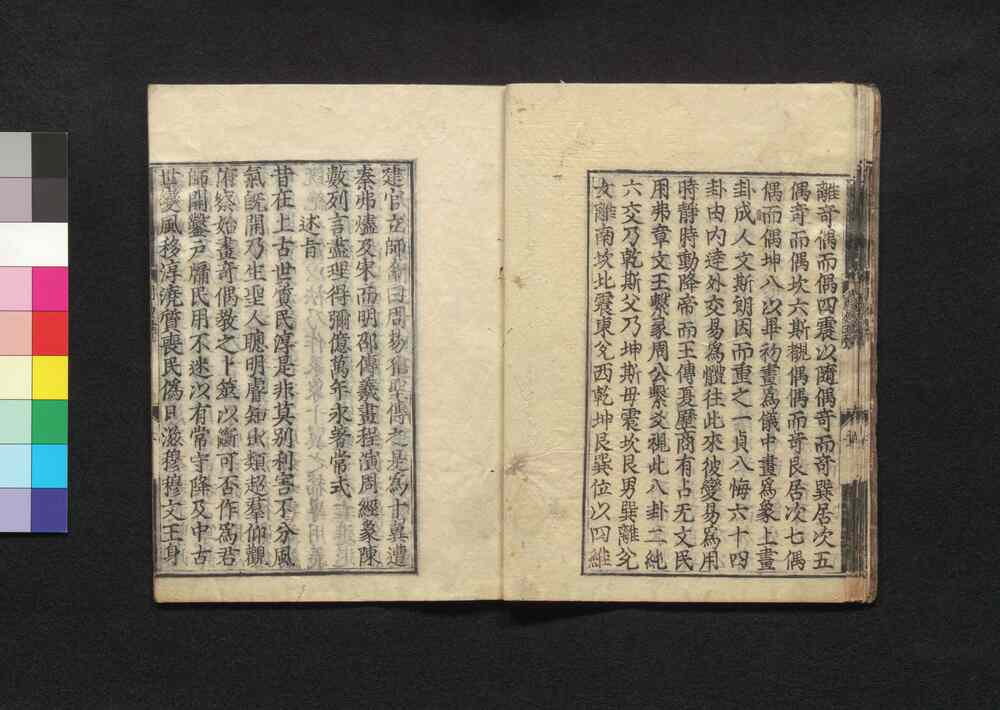 離奇偶而偶四震以隨偶奇而奇巽居次五
偶奇而偶坎六斯覩偶偶而奇艮居次七偶
偶而偶坤八以畢初畫爲儀中畫爲象上畫
卦成人文斯朗因而重之一貞八悔六十四
卦由內達外交易爲體往此來彼變易爲用
時靜時動降帝而王傳夏歷商有占无文民
用弗章文王繫彖周公繫爻視此八卦二純
六交乃乾斯父乃坤斯母震坎艮男巽離兌
女離南坎北震東兌西乾坤艮巽位以四維
建官立師命曰周易孔聖傳之是爲十翼遭
秦弗燼及宋而明邵傳羲畫程演周經象陳
數列言盡理得彌億萬年永著常式
述旨
昔在上古世質民淳是非莫別利害不分風
氣旣開乃生聖人聰明睿知出類超羣仰觀
俯察始畫奇偶敎之卜筮以斷可否作爲君
師開鑿戶牖民用不迷以有常守降及中古
世變風移淳澆質喪民僞日滋穆穆文王身